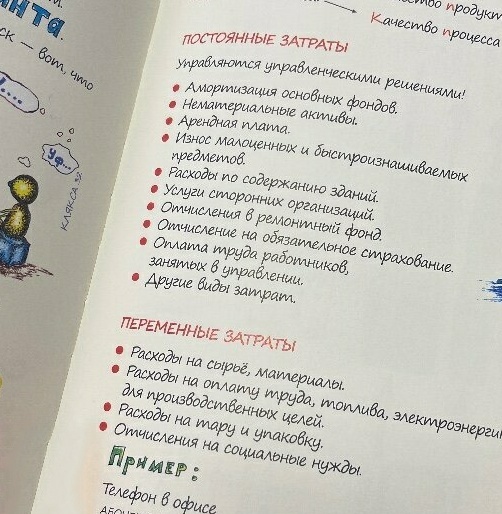 нта.
ск — вот, что
уф...
КЛЯКСА
продукт
Качество процесса
ПОСТОЯННЫЕ ЗАТРАТЫ
Управляются управленческими решениями!
• Амортизация основных фондов.
• Нематериальные активы.
• Арендная плата.
• Износ малоценных и быстроизнашиваемых
предметов.
• Расходы по содержанию зданий.
• Услуги сторонних организаций.
• Отчисления в ремонтный фонд.
• Отчисление на обязательное страхование.
• Оплата труда работников,
занятых в управлении.
• Другие виды затрат.
ПЕРЕМЕННЫЕ ЗАТРАТЫ
• Расходы на сырьё, материалы.
• Расходы на оплату труда, топлива, электроэнергии
для производственных целей.
• Расходы на тару и упаковку.
• Отчисления на социальные нужды.
Пример:
Телефон в офисе